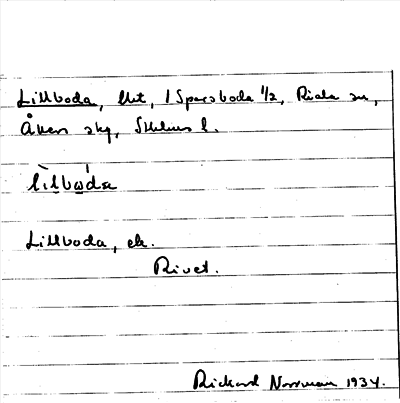 Lillboda, lht, 1 Sparsboda 1/2, Riala sn,
Åkers skg, Sthlms l.
lìlbωda
Lillboda, ek.
Rivet.
Rickard Norrman 1934.